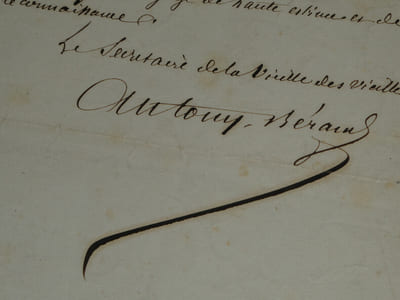 de haute estime et de
reconnaissance.
Le Secretaire de la Vieille des vieilles
Antony-Béraud